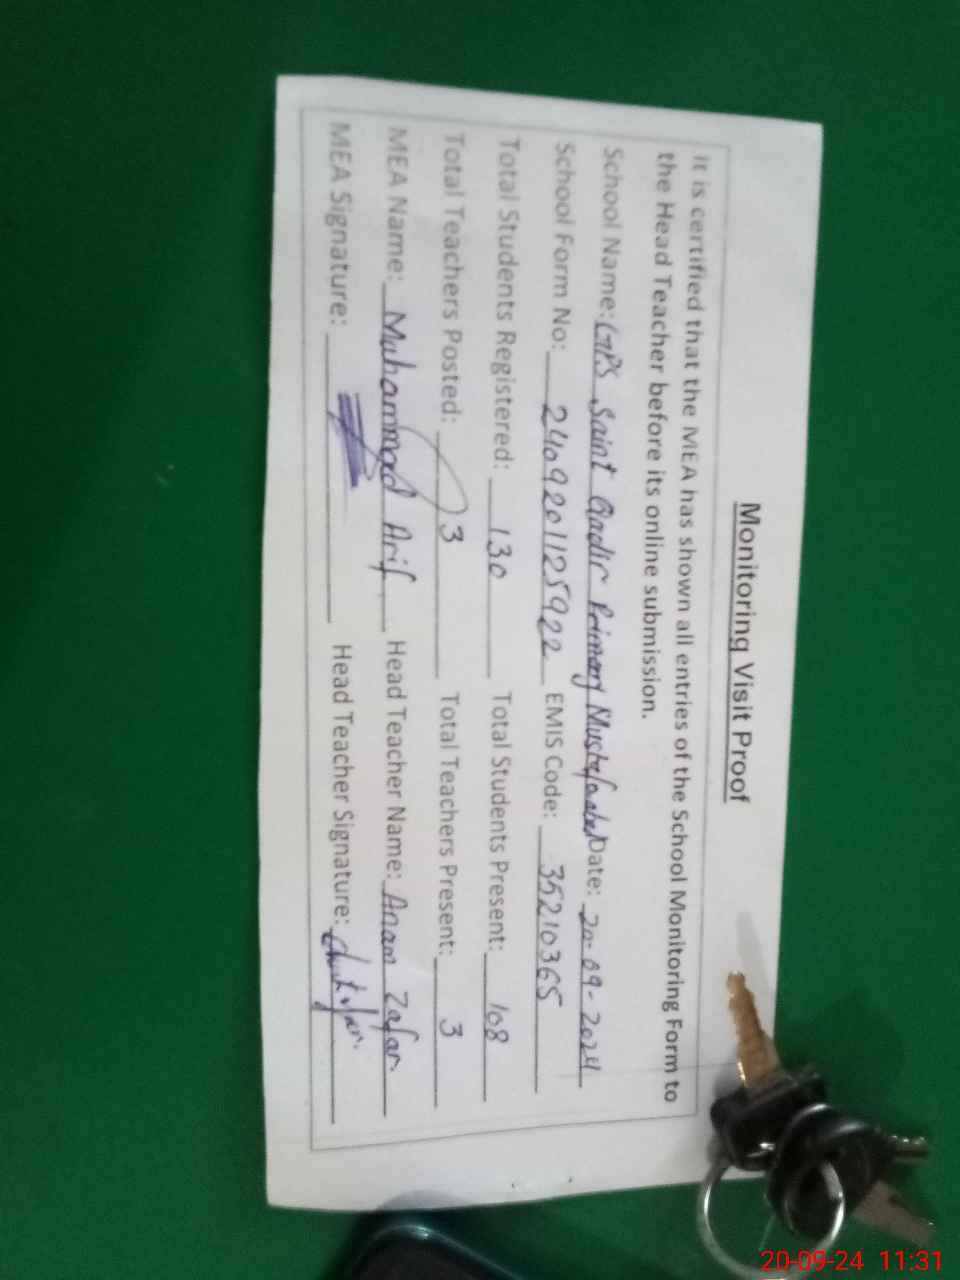 Monitoring Visit Proof
It is certified that the MEA has shown all entries of the School Monitoring Form to
the Head Teacher before its online submission.
School Name: GPS Saint Qadir Primary Mustafaabad Date: 20-09-2024
School Form No: 2409201125922 EMIS Code: 35210365
Total Students Registered: 130 Total Students Present: 108
Total Teachers Posted: 3 Total Teachers Present: 3
MEA Name: Muhammad Arif Head Teacher Name: Anam Zafar
MEA Signature: Head Teacher Signature:
20-09-24 11:31